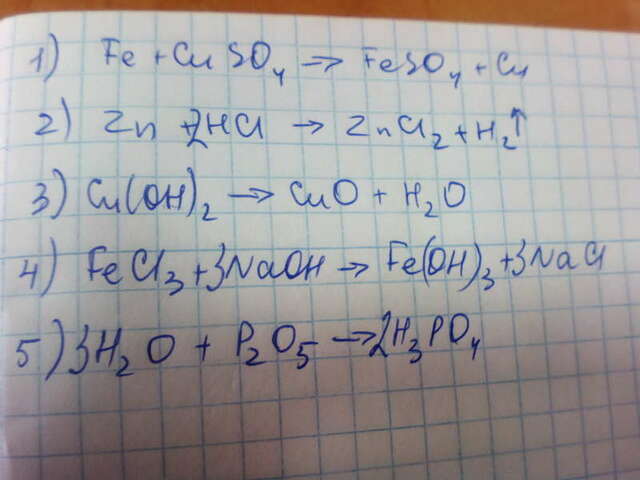 1) Fe + CuSO₄ → FeSO₄ + Cu
2) Zn + 2HCl → ZnCl₂ + H₂↑
3) Cu(OH)₂ → CuO + H₂O
4) FeCl₃ + 3NaOH → Fe(OH)₃ + 3NaCl
5) 3H₂O + P₂O₅ → 2H₃PO₄